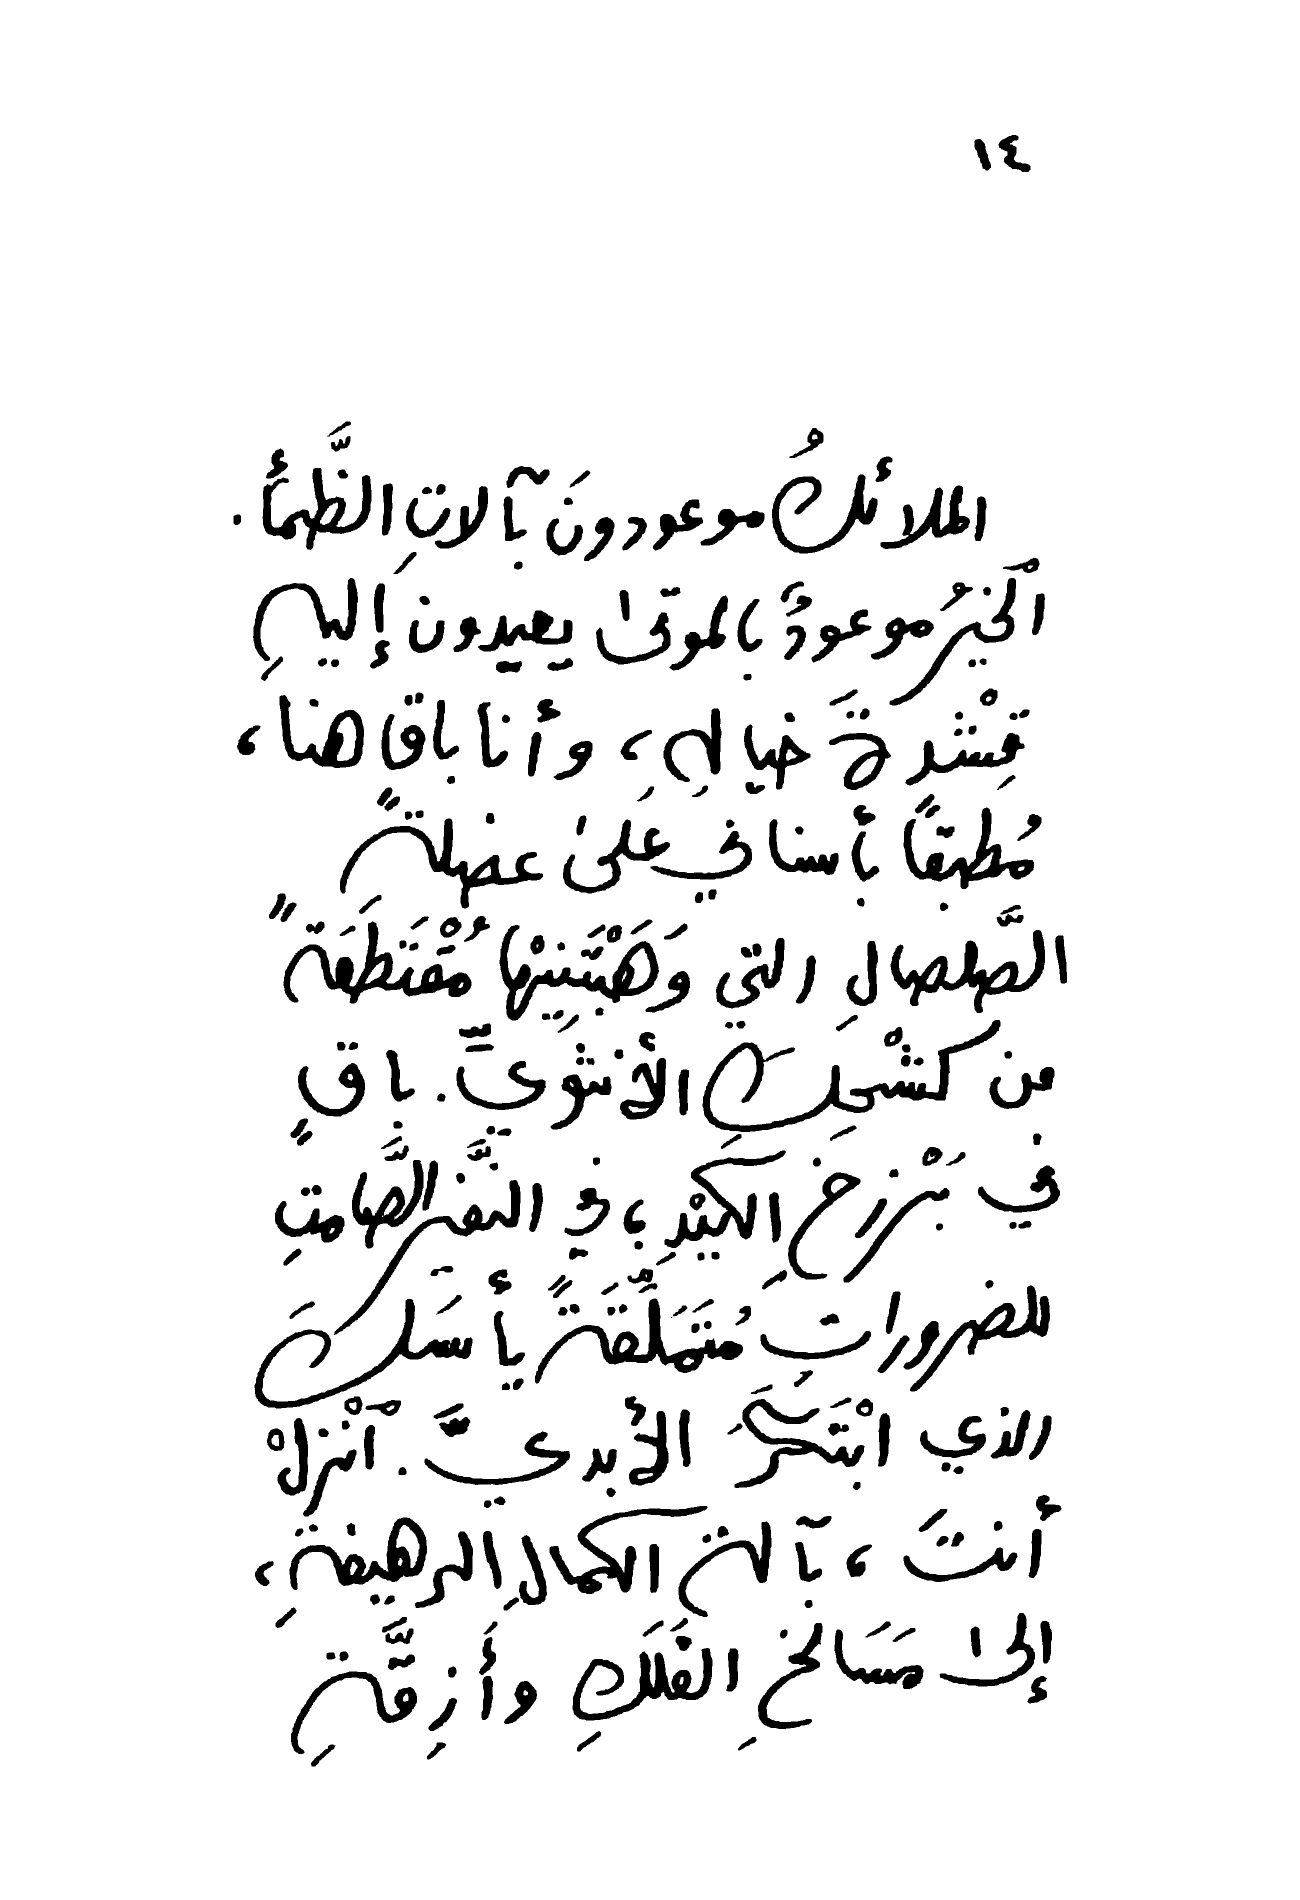 ١٤
الملائكُ موعودونَ بآلاتِ الظَّمأ.
اْلخيرُ موعودٌ بالموتىٰ يعيدون إليهِ
قِشْدةَ خيالهِ، وأنا باقٍ هنا،
مُطبقًا بأسناني علىٰ عضلةً
الصَّلصالِ التي وَهَبْتَنِيْها مُقْتَطَفَةً
من كشْحِكَ الأنثويِّ. باقٍ
في بَرْزخِ الكَيْدِ، في النَّفَرِ الصَّامتِ
للضروراتِ مُتَمَلِّقَةً يأسَكَ
الذي ابْتَكَرَ الأبديَّ. اْنْزلْ
أنتَ، بآلة الكمالِ الرهيفةِ،
إلىٰ مَسَالخِ الفَلَكِ وأَزِقَّةِ